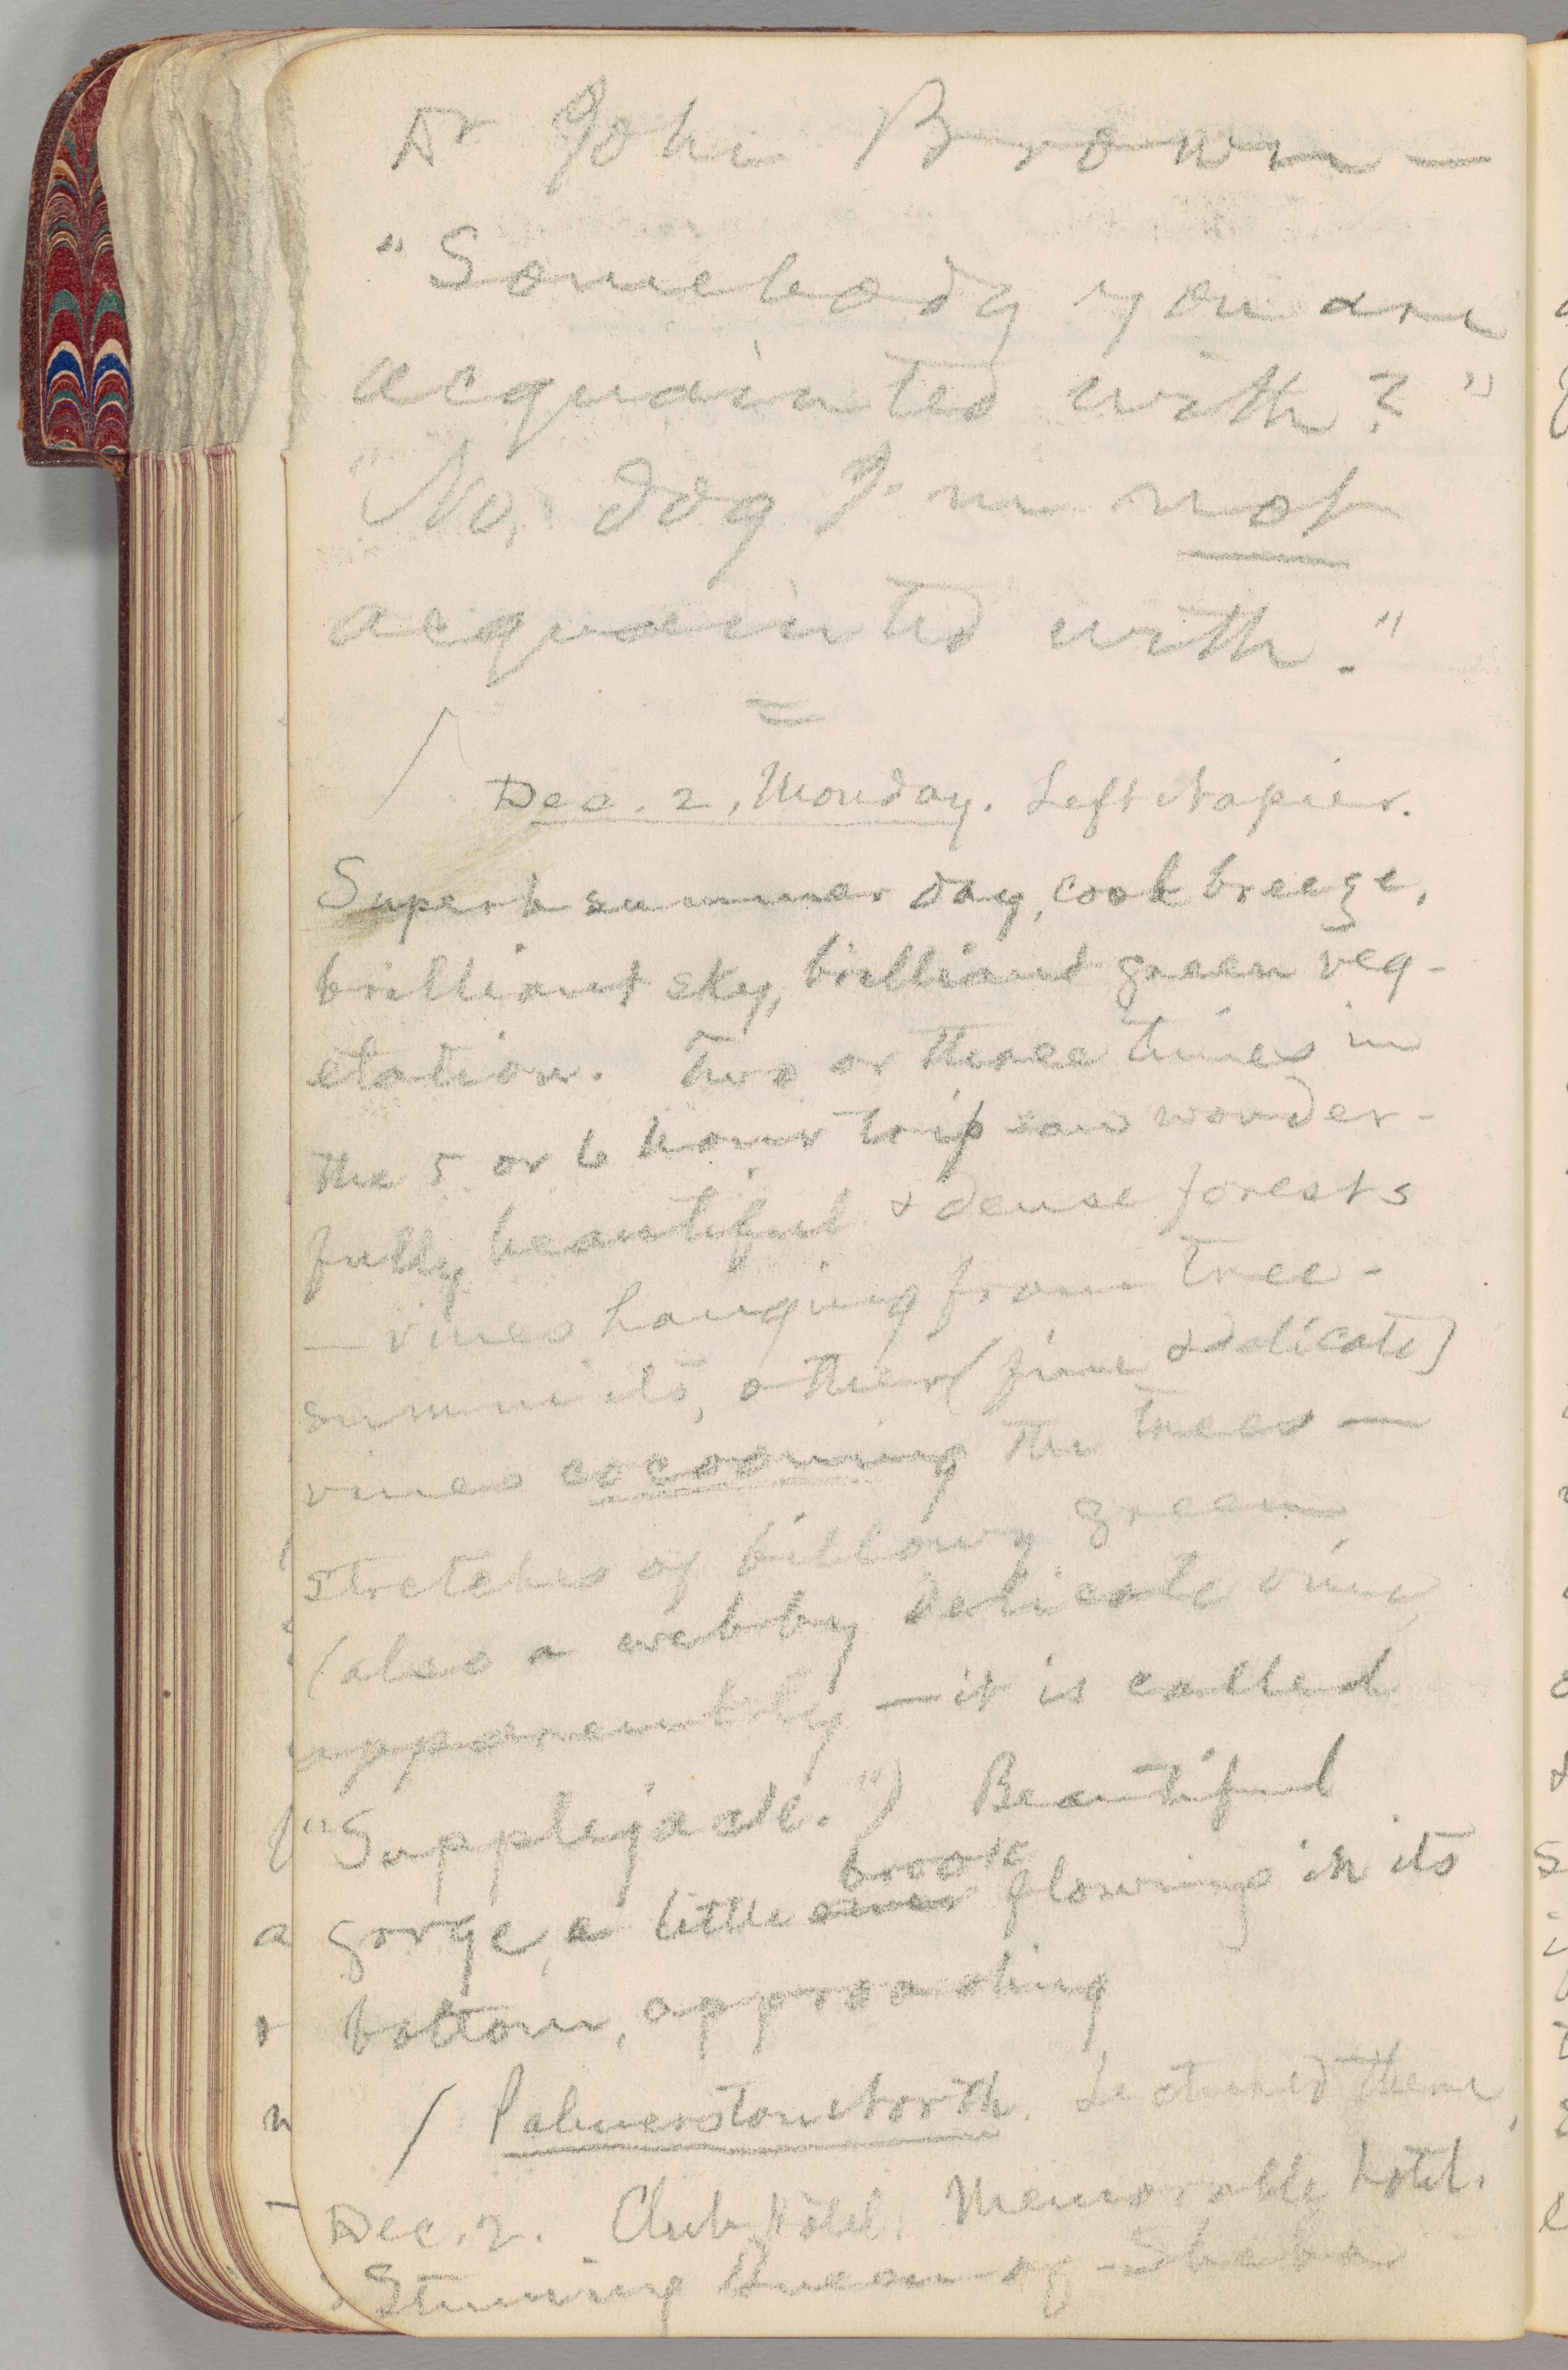 Dr John Brown —
"Somebody you are
acquainted with?"
"No, dog I'm not
acquainted with."
Dec. 2, Monday. Left Napier.
Superb summer day, cool breeze,
brilliant sky, brilliant green veg-
etation. Two or three times in
the 5 or 6 hour trip saw wonder-
fully beautiful & dense forests
— vines hanging from tree-
summits, other (fine & delicate)
vines cocooning the trees —
stretches of billowy green
(also a webby delicate vine,
apparently — it is called
"Supplejack.") Beautiful
brook
gorge, a little flowing in its
bottom, approaching
/ Palmerston North. Lectured there,
Dec. 2. Club Hotel. Memorable hotel.
Stunning Queen-of-Sheba